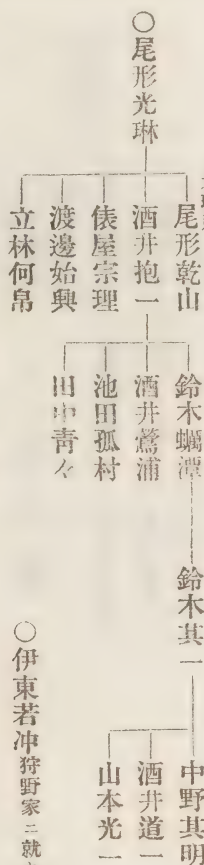 ○尾形光琳
尾形乾山
酒井抱一
俵屋宗理
渡邊始興
立林何帛
鈴木蠣潭
酒井鶯浦
池田孤村
田中青々
鈴木其一
中野其明
酒井道一
山本光一
○伊東若冲狩野家ニ就